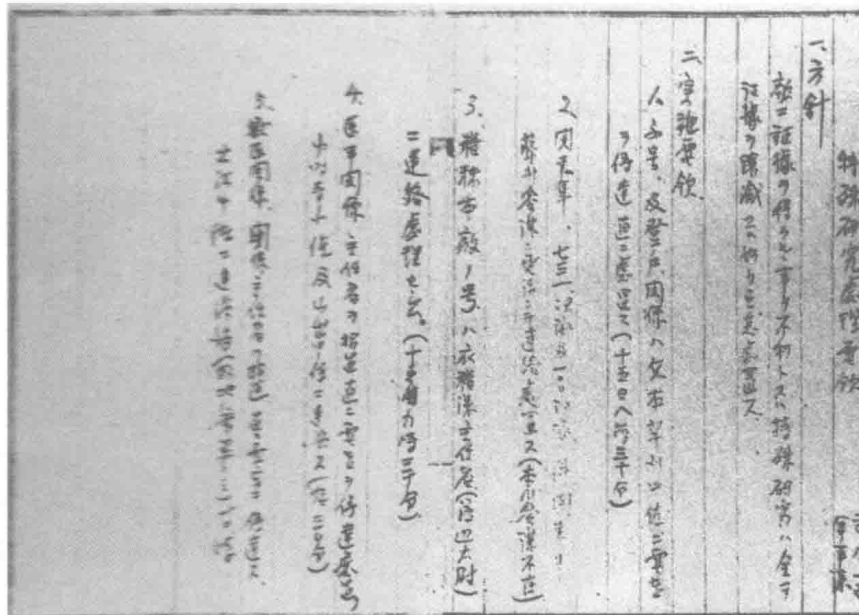 特殊研究處理要領
軍事課
一、方針
敵ニ証據ヲ得ラルル事ヲ不利トスル特殊研究ハ全テ
証據ヲ隠滅スル如ク至急處置ス
二、実施要領
1、ふ号、及登戸関係ハ兵本草刈中佐ニ要旨
ヲ傳達直ニ處置ス(十五日八時三十分)
2、関東軍、七三一部隊及一〇〇部隊ノ件関東軍
藤井参謀ニ電話ニテ連絡處置ス(本川参謀不在)
3、糧秣本廠1号ハ衣糧課主任者(渡辺大尉)
ニ連絡處理セシム。(十五日九時三十分)
4、医事関係主任者ヲ招置直ニ要旨ヲ傳達處置
中佐ニ連絡ス
5、獣医関係、関係主任者ヲ招置直ニ要旨ヲ傳達ス
出江中佐ニ連絡済